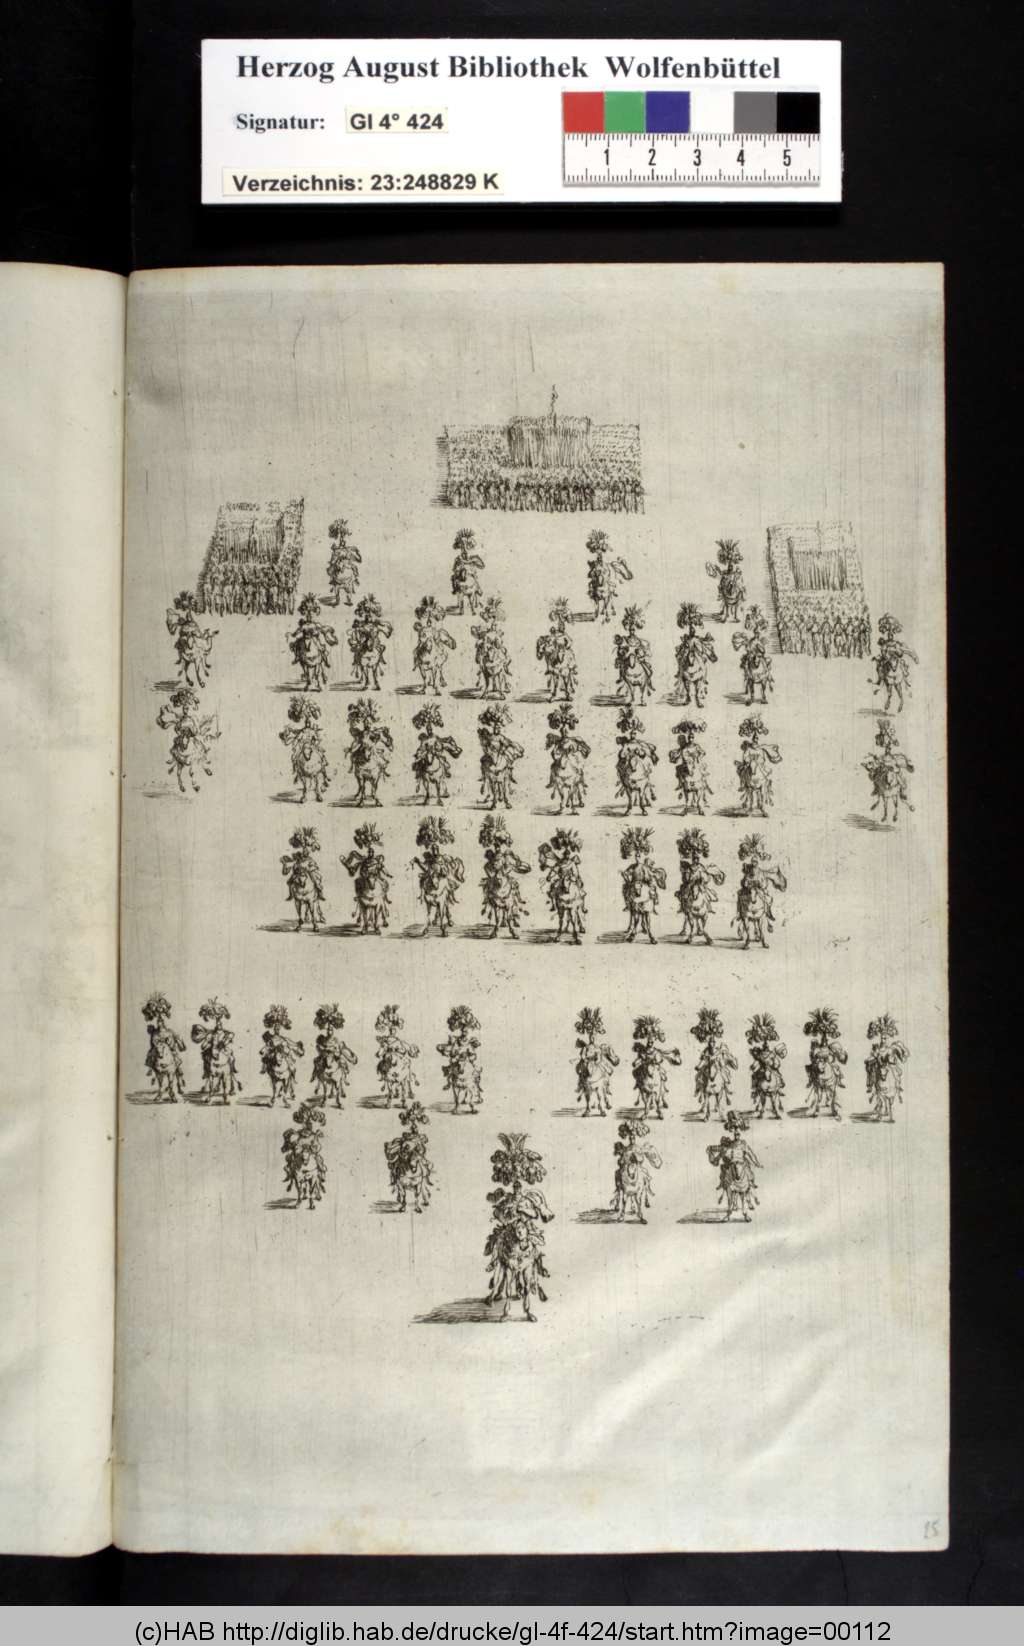 Herzog August Bibliothek Wolfenbüttel
Signatur: Gl 4° 424
Verzeichnis: 23:248829 K
1 2 3 4 5
25
(c)HAB http://diglib.hab.de/drucke/gl-4f-424/start.htm?image=00112